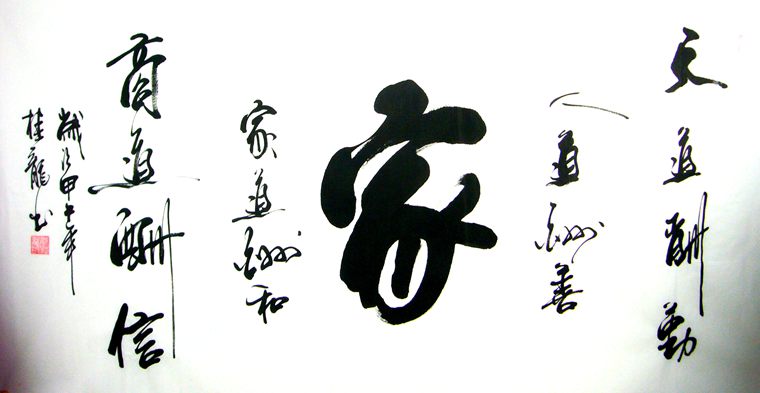 天道酬勤
人道酬善
家
家道酬和
商道酬信
歲次甲午年
桂龍书